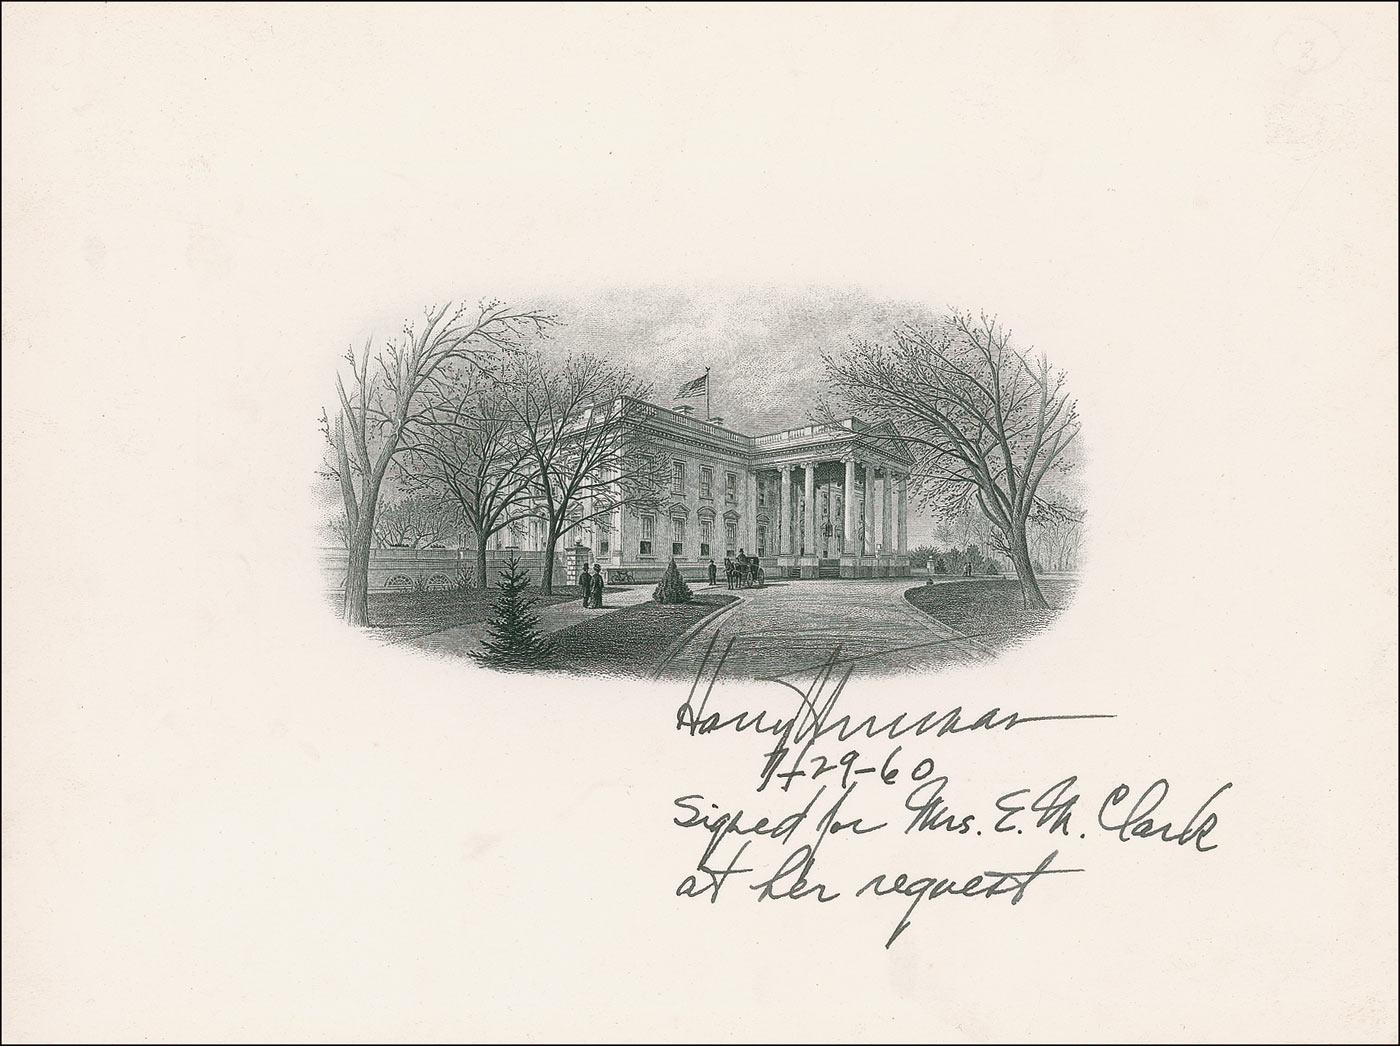 Harry Truman
7-29-60
Signed for Mrs. E. M. Clark
at her request